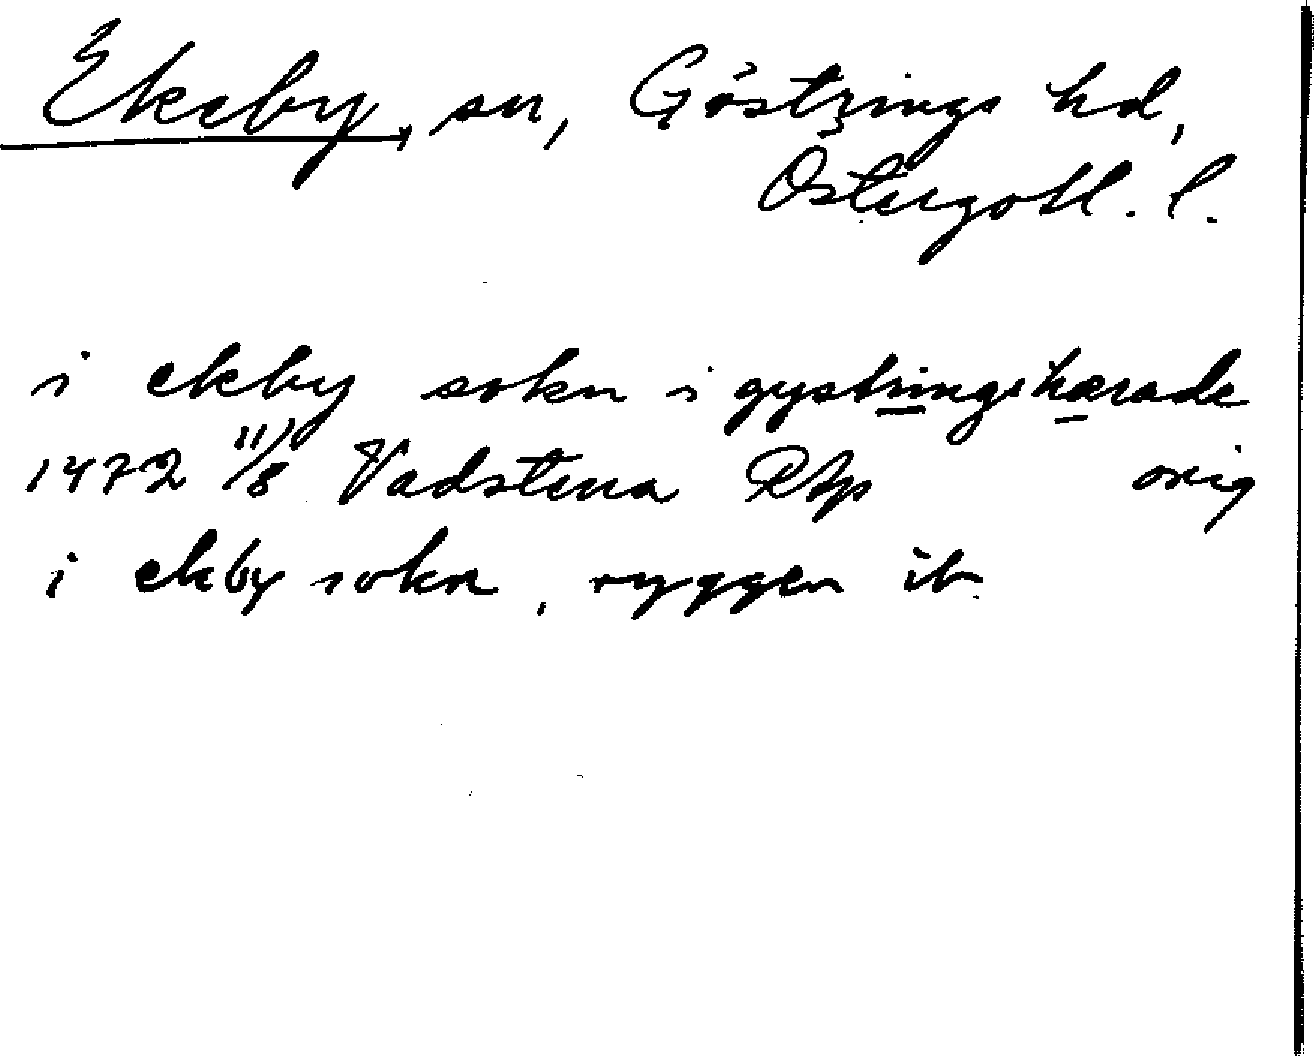 Ekeby, sn, Göstrings hd,
Östergötl. l.
i ekby sokn i gystringshærade
1472 11/8 Vadstena RAp orig
i ekby sokn, ryggen ib